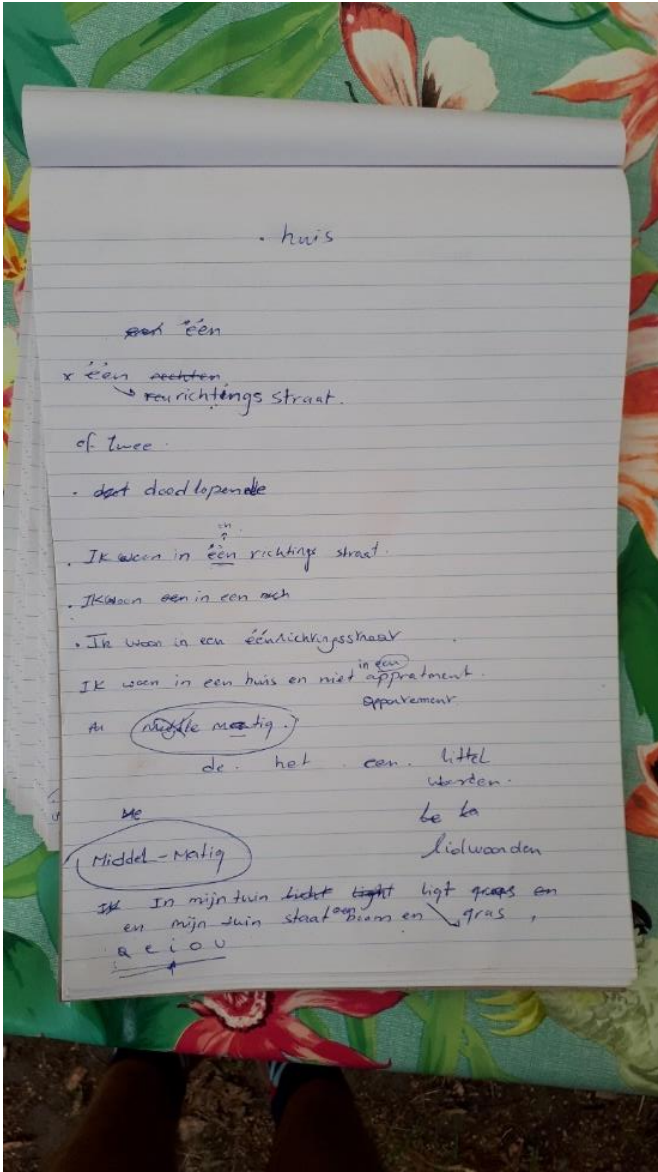 . huis
één
x één rechten
richtings straat.
of twee.
. doodlopende
in
. Ik woon in één richtings straat.
. Ik woon in een
. Ik woon in een éénrichtingsstraat
in een
Ik woon in een huis en niet appratment.
appartement
Middle matig.
de. het. een. littel
worden.
Middel-Matig
lidwoorden
In mijn tuin licht light ligt gras en
en mijn tuin staat een boom en gras,
a e i o u